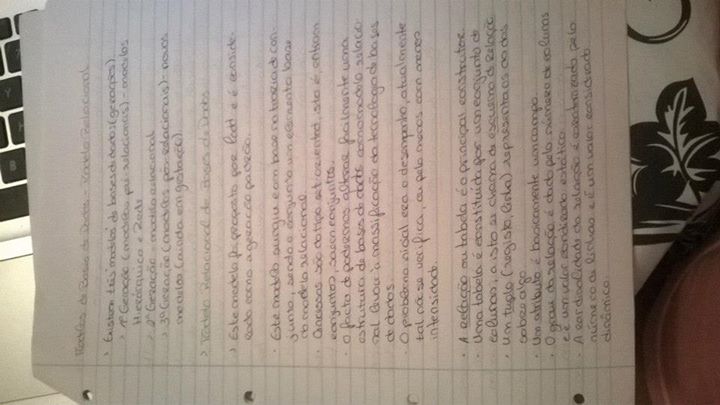 Modelos de Bases de Dados. Modelo Relacional
> Existem três modelos de bases de dados (gerações).
> 1ª Geração (modelos pré relacionais) - modelos
Hierárquico e Rede
> 2ª Geração - modelo relacional
> 3ª Geração (modelos pós-relacionais) - novos
modelos (ainda em gestação)
> Modelo Relacional de Bases de Dados
> Este modelo foi proposto por Codd e é conside-
rado como a geração padrão.
· Este modelo surgiu com base na teoria de con-
junto, sendo o conjunto um elemento base
do modelo relacional.
· Operações são do tipo set oriented, isto é, entram
conjuntos, saem conjuntos.
· O facto de podermos alterar facilmente uma
estrutura de bases de dados como modelo relacio-
nal levou à massificação da tecnologia de bases
de dados.
· O problema inicial era o desempenho, atualmente
tal não se verifica, ou pelo menos com menos
intensidade.
· A Relação ou tabela é o principal constructor
· Uma tabela é constituída por um conjunto de
colunas, a isto se chama de esquema de relação
· Um tuplo (registo, linha) representa os dados
sobre algo
· Um atributo é basicamente um campo.
· O grau da relação é dado pelo número de colunas
e é um valor considerado estático.
· A cardinalidade da relação é caracterizado pelo
número de linhas e é um valor considerado
dinâmico.